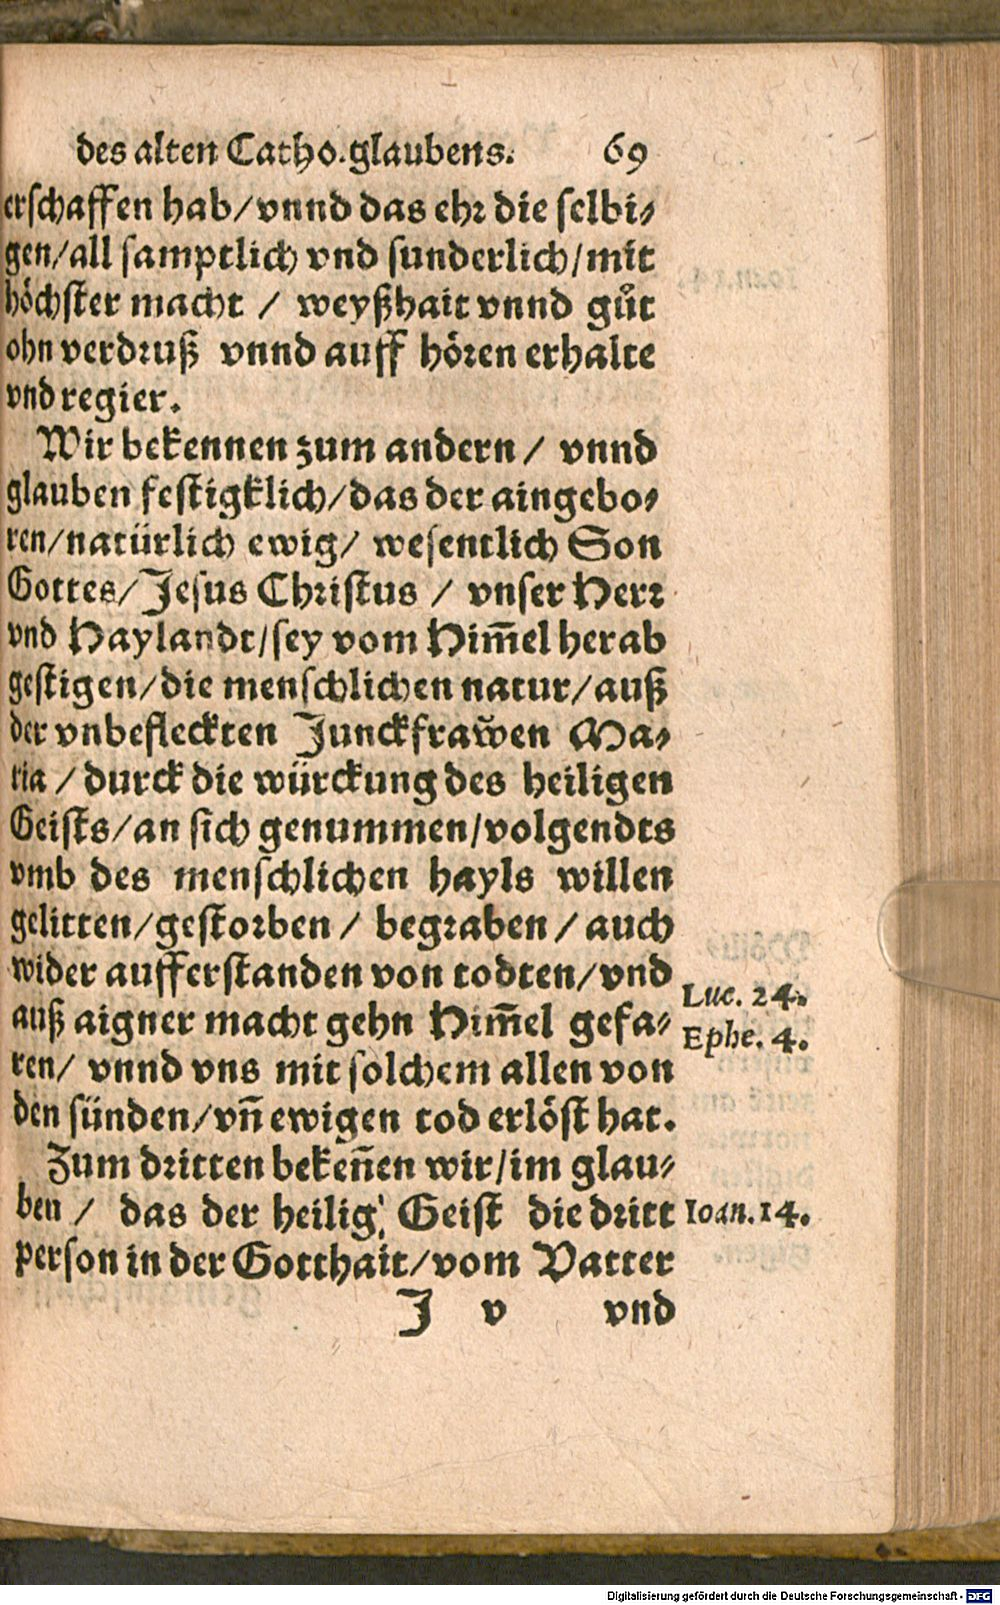 des alten Catho.glaubens. 69
erschaffen hab/vnnd das ehr die selbi⸗
gen/all samptlich vnd sunderlich/mit
höchster macht / weyßhait vnnd guͦt
ohn verdruß vnnd auff hören erhalte
vnd regier.
Wir bekennen zum andern / vnnd
glauben festigklich/das der aingebo⸗
ren/natürlich ewig/ wesentlich Son
Gottes/Jesus Christus / vnser Herr
vnd Haylandt/sey vom Him̄el herab
gestigen/die menschlichen natur/auß
der vnbefleckten Junckfraw̌en Ma⸗
ria / durck die würckung des heiligen
Geists/an sich genummen/volgendts
vmb des menschlichen hayls willen
gelitten/gestorben / begraben / auch
wider aufferstanden von todten/vnd
Luc. 24.
auß aigner macht gehn Him̄el gefa⸗
Ephe. 4.
ren/ vnnd vns mit solchem allen von
den sünden/vn̄ ewigen tod erlöst hat.
Zum dritten beken̄en wir/im glau⸗
ben / das der heilig' Geist die dritt
Ioan. 14.
person in der Gotthait/vom Vatter
J v vnd
Digitalisierung gefördert durch die Deutsche Forschungsgemeinschaft - DFG